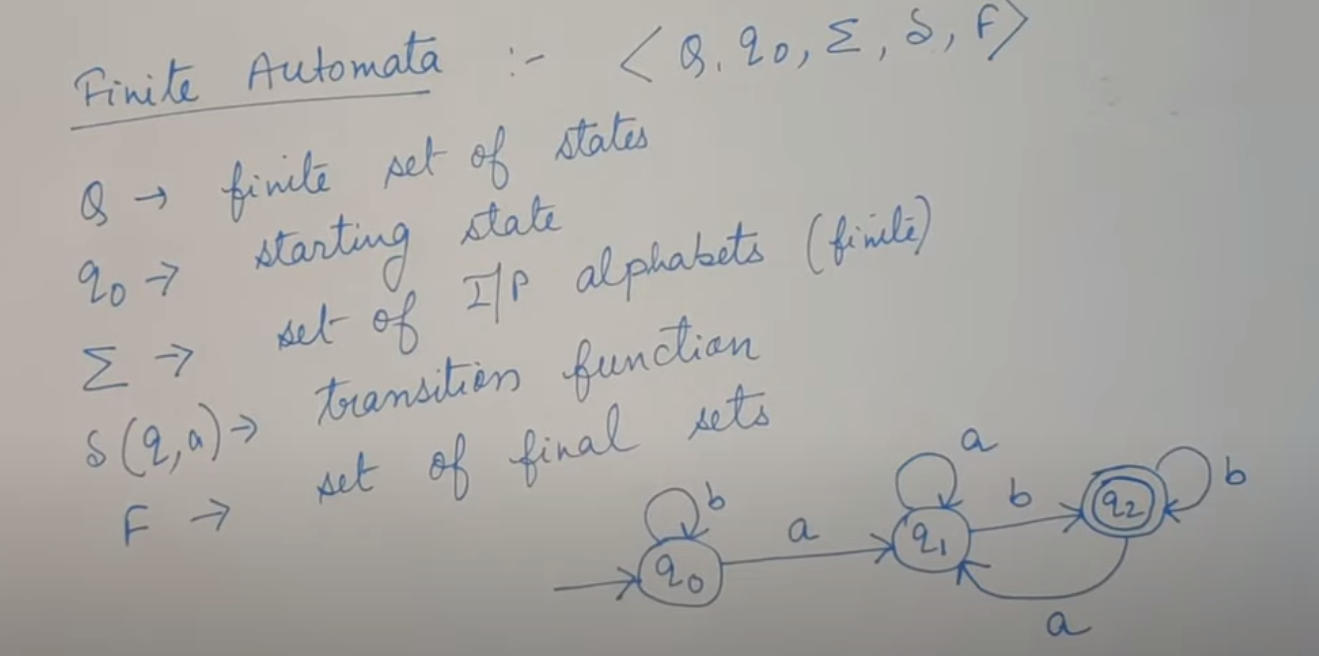 Finite Automata :- < Q, q0, Σ, δ, F>
Q → finite set of states
q0 → starting state
Σ → set of I/P alphabets (finite)
δ(q,a) → transition function
F → set of final sets
b
a
a
b
b
q0
q1
q2
a